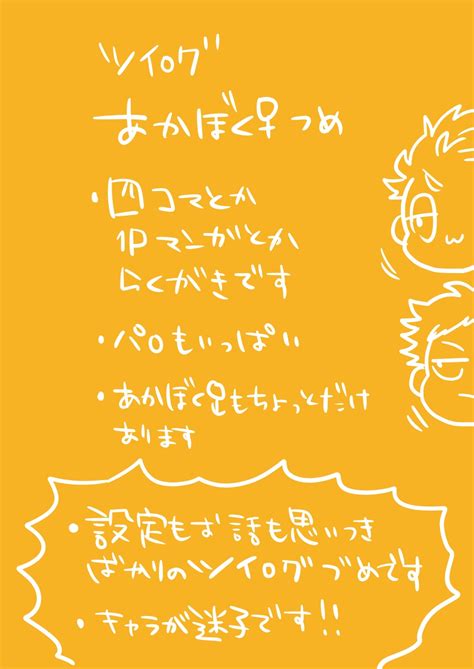 ツイログ
あかぼく♀つめ
・四コマとか
1Pマンガとか
らくがきです
・パロもいっぱい
・あかぼく足もちょっとだけ
あります
・設定もお話も思いつき
ばかりのツイログづめです
・キャラが迷子です!!